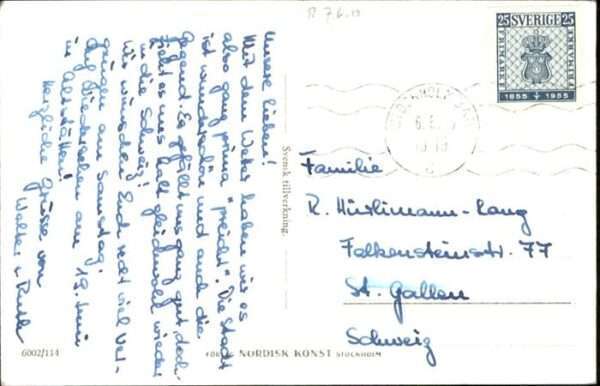 R 76.10
Unsere Lieben!
Mit dem Wetter haben wir es
also ganz prima "preicht". Die Stadt
ist wunderschön und auch die
Gegend. Es gefällt uns ganz gut, doch
zieht es uns halt gleichwohl wieder
in die Schweiz!
Wir wünschen Euch recht viel Ver-
gnügen am Samstag!
Auf Wiedersehen am 19. Juni
in Altstätten!
Herzliche Grüsse von
Walter u. Ruth
6002/114
Svensk tillverkning.
NORDISK KONST STOCKHOLM
25 SVERIGE 25
FRIMÄRKE
1855 1955
STOCKHOLM
6.6.
19
Familie
R. Hürlimann-Lang
Falkensteinstr. 77
St. Gallen
Schweiz